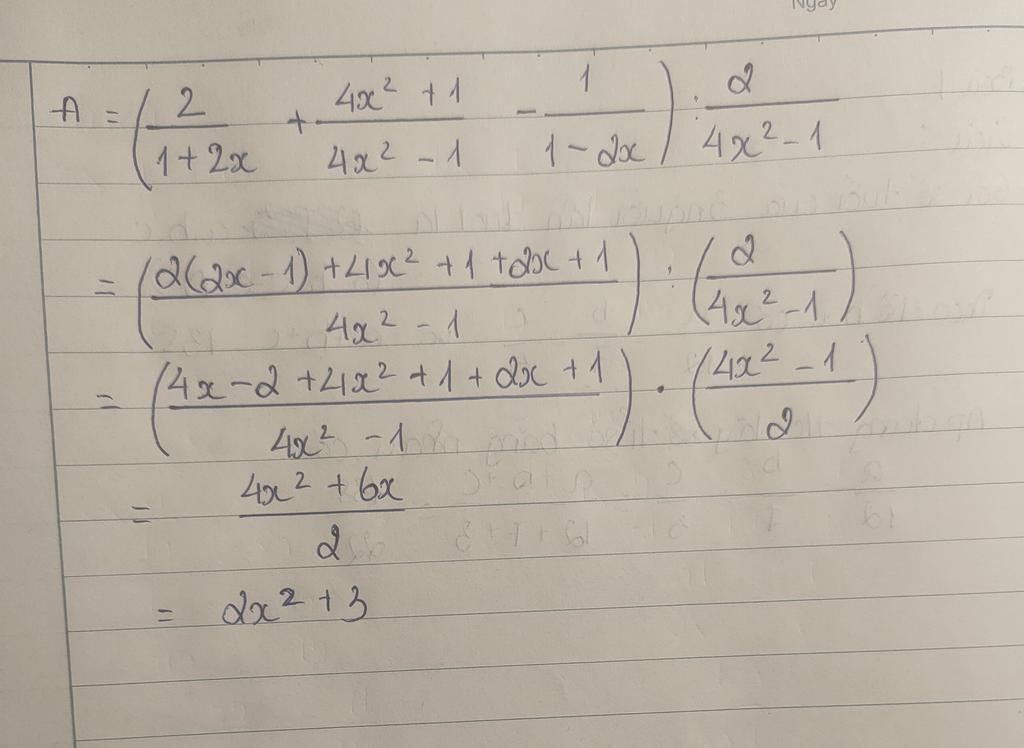 Ngày
A = (2/(1 + 2x) + (4x² + 1)/(4x² - 1) - 1/(1 - 2x)) : 2/(4x² - 1)
= ((2(2x - 1) + 4x² + 1 + 2x + 1)/(4x² - 1)) : (2/(4x² - 1))
= ((4x - 2 + 4x² + 1 + 2x + 1)/(4x² - 1)) · ((4x² - 1)/2)
= (4x² + 6x)/2
= 2x² + 3